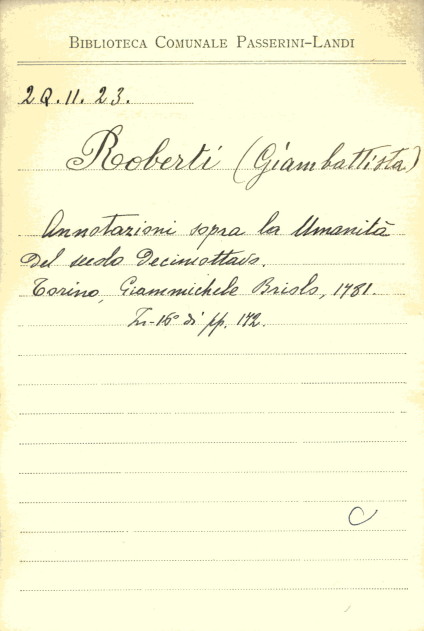 BIBLIOTECA COMUNALE PASSERINI-LANDI
2Q.11.23.
Roberti (Giambattista)
Annotazioni sopra la Umanità
del secolo Decimottavo.
Torino, Giammichele Briolo, 1781.
In-16° di pp. 172.
C